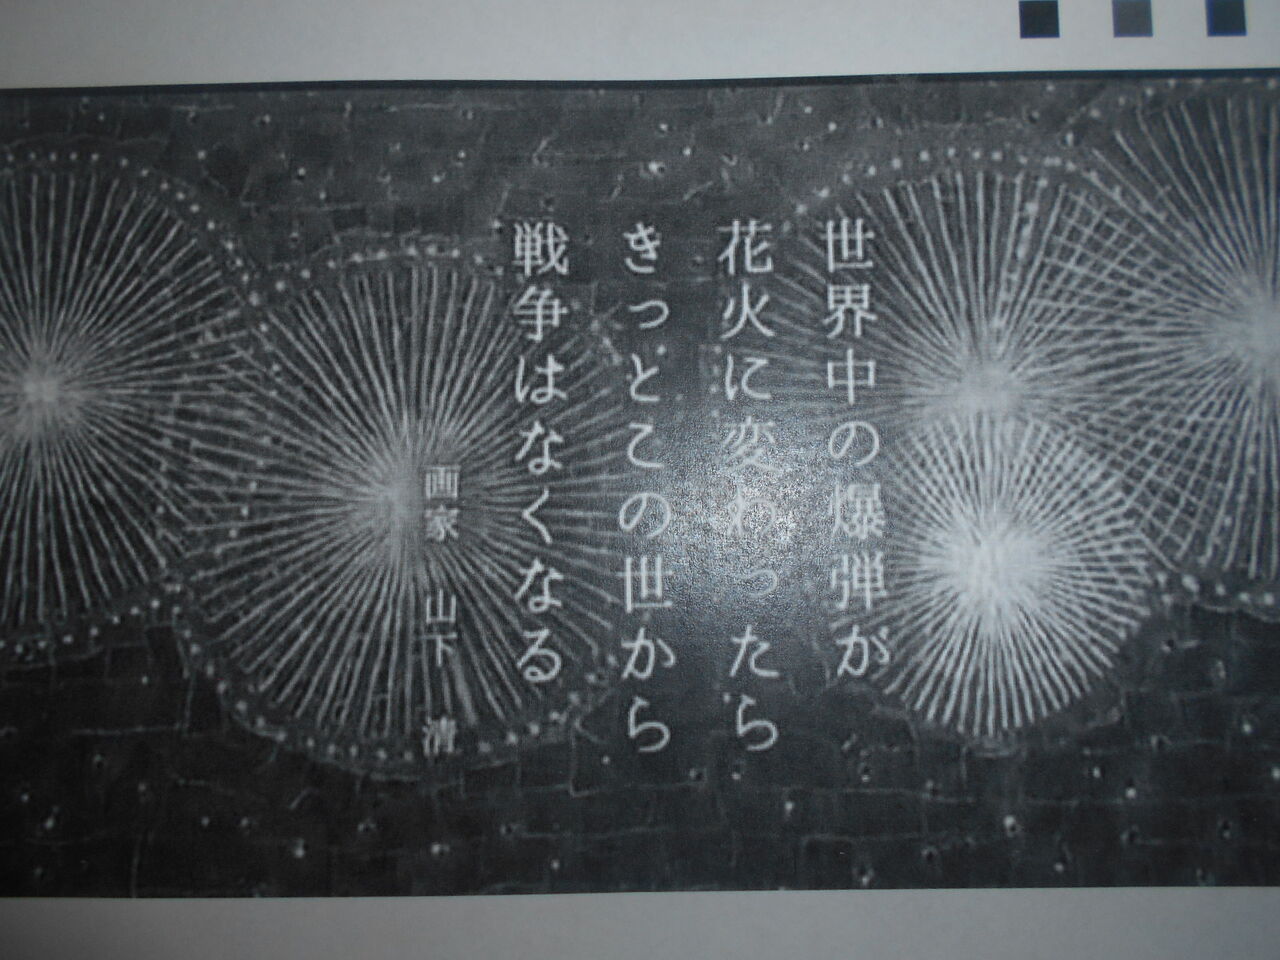 世界中の爆弾が
花火に変わったら
きっとこの世から
戦争はなくなる
画家 山下 清